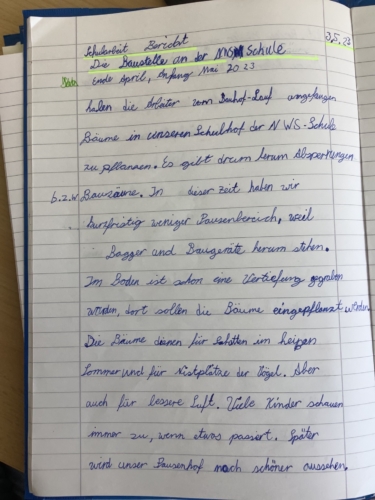 Schularbeit Bericht 3.5.23
Die Baustelle an der NWS Schule
Ende April, Anfang Mai 2023
haben die Arbeiter vom Bauhof Lauf angefangen
Bäume in unseren Schulhof der NWS-Schule
zu pflanzen. Es gibt drum herum Absperrungen
b.z.w Bauzäune. In dieser Zeit haben wir
kurzfristig weniger Pausenbereich, weil
Bagger und Baugeräte herum stehen.
Im Boden ist schon eine Vertiefung gegraben
worden, dort sollen die Bäume eingepflanzt werden.
Die Bäume dienen für Schatten im heißen
Sommer und für Nistplätze der Vögel. Aber
auch für bessere Luft. Viele Kinder schauen
immer zu, wenn etwas passiert. Später
wird unser Pausenhof noch schöner aussehen.